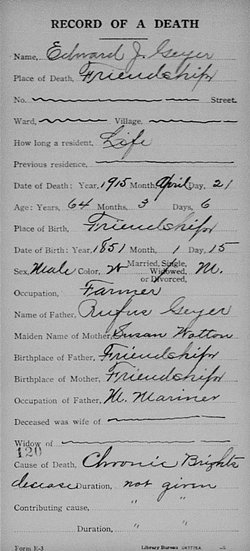 RECORD OF A DEATH
Name, Edward J. Geyer
Place of Death, Friendship
No. Street.
Ward, Village,
How long a resident, Life
Previous residence,
Date of Death: Year, 1915 Month, April Day, 21
Age: Years, 64 Months, 3 Days, 6
Place of Birth, Friendship
Date of Birth: Year, 1851 Month, 1 Day, 15
Sex, Male Color, W Married, Single, Widowed, or Divorced, M.
Occupation, Farmer
Name of Father, Rufus Geyer
Maiden Name of Mother, Susan Wotton
Birthplace of Father, Friendship
Birthplace of Mother, Friendship
Occupation of Father, M. Mariner
Deceased was wife of
Widow of
120
Cause of Death, Chronic Brights
disease Duration, not given
Contributing cause, " "
Duration, " "
Form R-3 Library Bureau